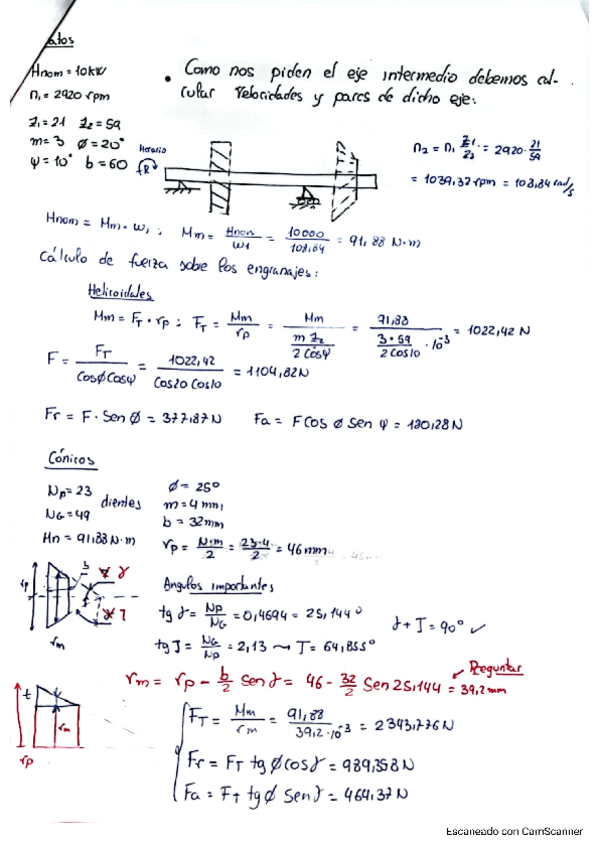 atos
Hnom = 10kW
n1 = 2920 rpm
Z1 = 21 Z2 = 59
m = 3 ø = 20°
ψ = 10° b = 60
• Como nos piden el eje intermedio debemos cal-
cular velocidades y pares de dicho eje:
Horario
R
n2 = n1 Z1/Z2 = 2920 · 21/59
= 1039,32 rpm = 108,84 rad/s
Hnom = Mm · ω1 ; Mm = Hnom/ω1 = 10000/108,84 = 91,88 N·m
Cálculo de fuerza sobre los engranajes:
Helicoidales
Mm = FT · rp ; FT = Mm/rp = Mm / (m Z2 / 2 Cosψ) = 91,88 / (3·59 / 2 Cos10 · 10^-3) = 1022,42 N
F = FT / CosøCosψ = 1022,42 / Cos20 Cos10 = 1104,82N
Fr = F · Sen ø = 377,87N Fa = F Cos ø Sen ψ = 180,28N
Cónicos
Np = 23
NG = 49
dientes
Mn = 91,88 N·m
ø = 25°
m = 4 mm
b = 32mm
rp = N·m/2 = 23·4/2 = 46mm
Angulos importantes
tg γ = Np/NG = 0,4694 = 25,144°
tg Γ = NG/Np = 2,13 ⇝ Γ = 64,855°
γ + Γ = 90° ✓
rp
b
γ
Γ
rm
rm = rp - b/2 sen γ = 46 - 32/2 Sen 25,144 = 39,2mm
Preguntar
t
rm
rp
FT = Mm/rm = 91,88 / 39,2·10^-3 = 2343,776N
Fr = FT tg ø cos γ = 989,358N
Fa = FT tg ø Sen γ = 464,37N
Escaneado con CamScanner